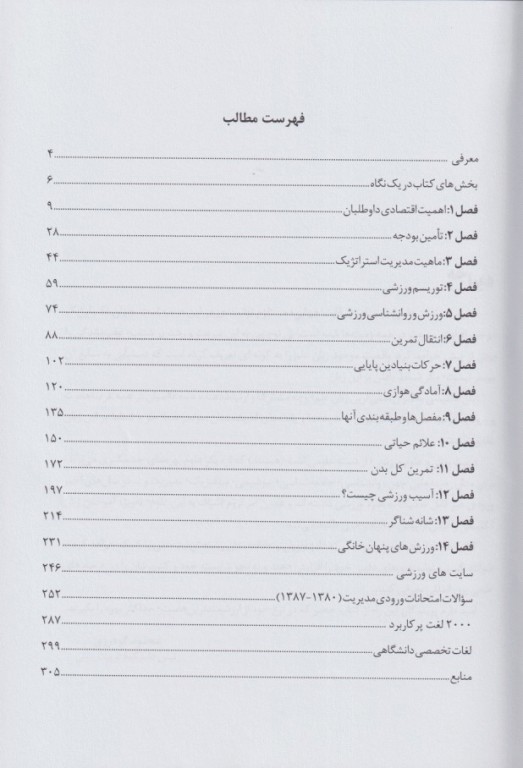 فهرست مطالب
معرفی ........ ۴
بخش های کتاب در یک نگاه ........ ۶
فصل ۱: اهمیت اقتصادی داوطلبان ........ ۹
فصل ۲: تأمین بودجه ........ ۲۸
فصل ۳: ماهیت مدیریت استراتژیک ........ ۴۴
فصل ۴: توریسم ورزشی ........ ۵۹
فصل ۵: ورزش و روانشناسی ورزشی ........ ۷۴
فصل ۶: انتقال تمرین ........ ۸۸
فصل ۷: حرکات بنیادین پایایی ........ ۱۰۲
فصل ۸: آمادگی هوازی ........ ۱۲۰
فصل ۹: مفصل ها و طبقه بندی آنها ........ ۱۳۵
فصل ۱۰: علائم حیاتی ........ ۱۵۰
فصل ۱۱: تمرین کل بدن ........ ۱۷۲
فصل ۱۲: آسیب ورزشی چیست؟ ........ ۱۹۷
فصل ۱۳: شانه شناگر ........ ۲۱۴
فصل ۱۴: ورزش های پنهان خانگی ........ ۲۳۱
سایت های ورزشی ........ ۲۴۶
سؤالات امتحانات ورودی مدیریت (۱۳۸۰-۱۳۸۷) ........ ۲۵۲
۲۰۰۰ لغت پر کاربرد ........ ۲۸۷
لغات تخصصی دانشگاهی ........ ۲۹۹
منابع ........ ۳۰۵